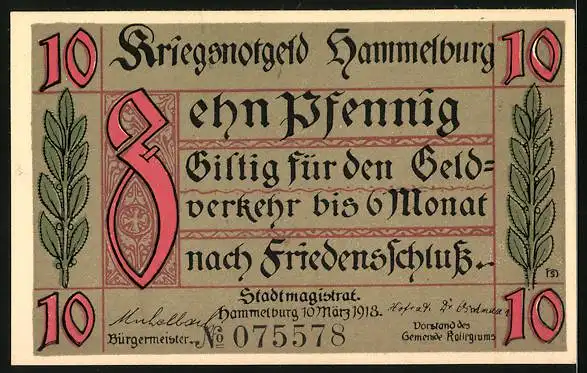 10 Kriegsnotgeld Hammelburg 10
Zehn Pfennig
Giltig für den Geld=
verkehr bis 6 Monat
nach Friedensschluß.
Stadtmagistrat.
Hammelburg 10 März 1918.
Hofrat Dr.
Bürgermeister
No 075578
Vorstand des
Gemeinde Kollegiums
10 10